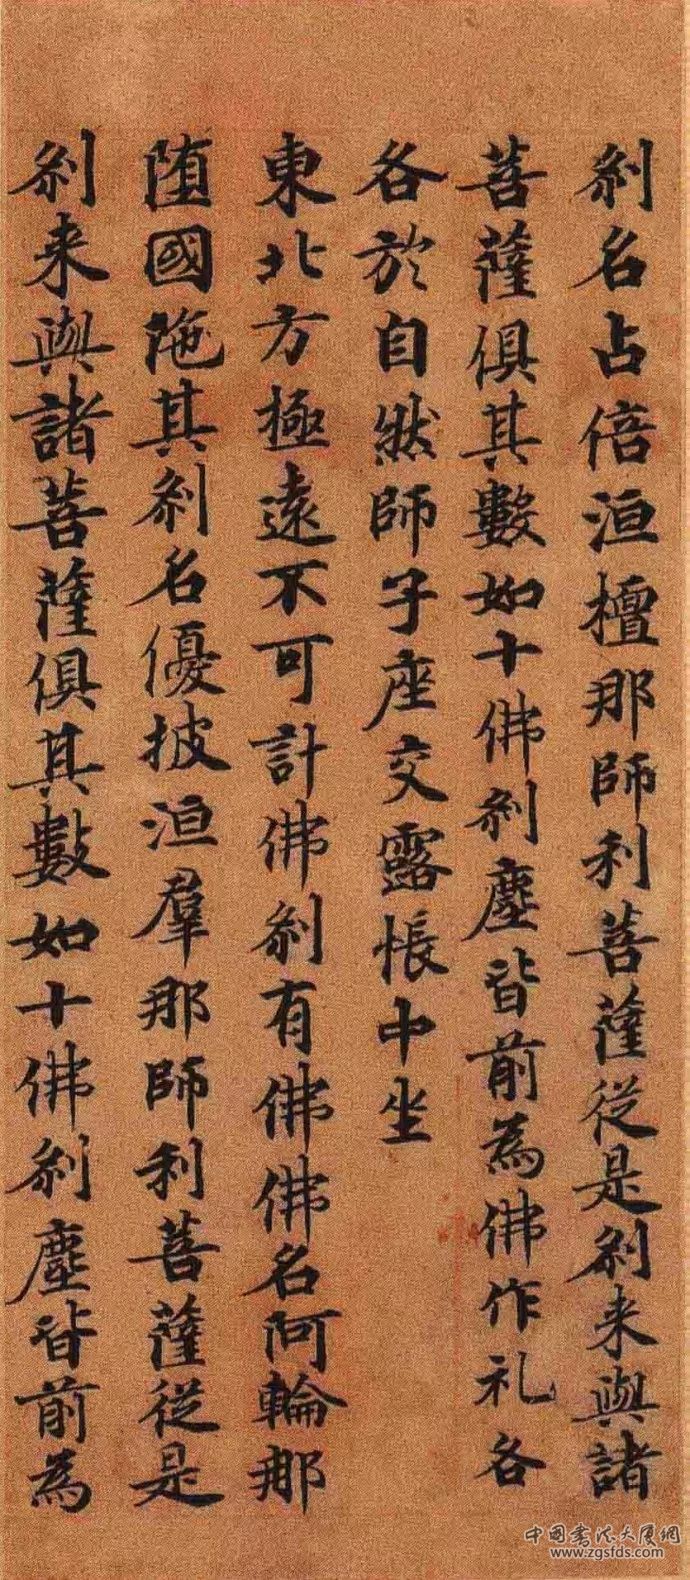 刹名占倍洹檀那師利菩薩従是刹来與諸
菩薩俱其數如十佛刹塵皆前為佛作礼各
各於自然師子座交露帳中坐
東北方極遠不可計佛刹有佛佛名阿輪那
堕國陁其刹名優披洹羣那師利菩薩従是
刹来與諸菩薩俱其數如十佛刹塵皆前為
中國書法大厦網
www.zgsfds.com